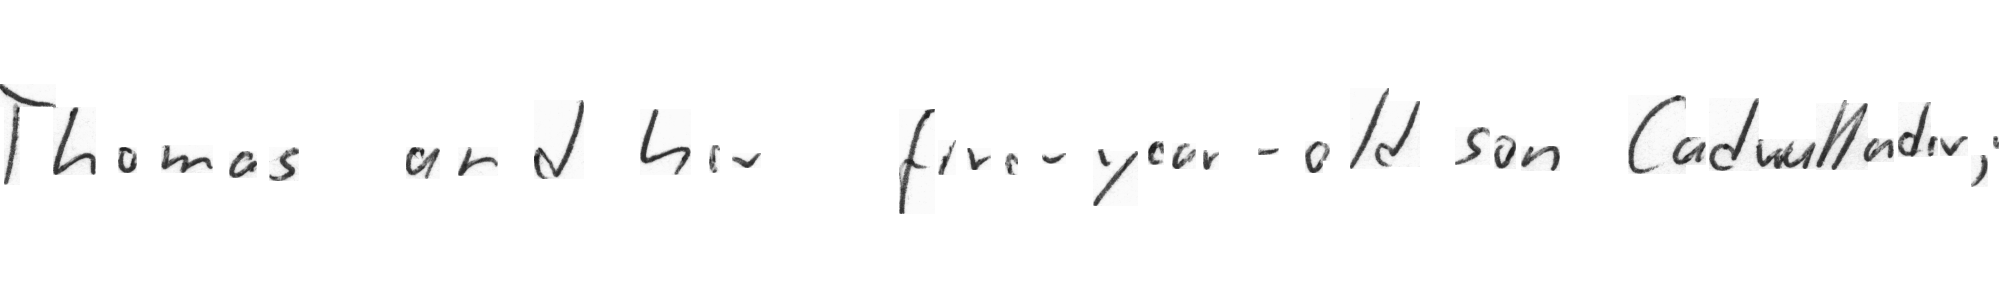 Thomas and her five-year-old son Cadwallader,